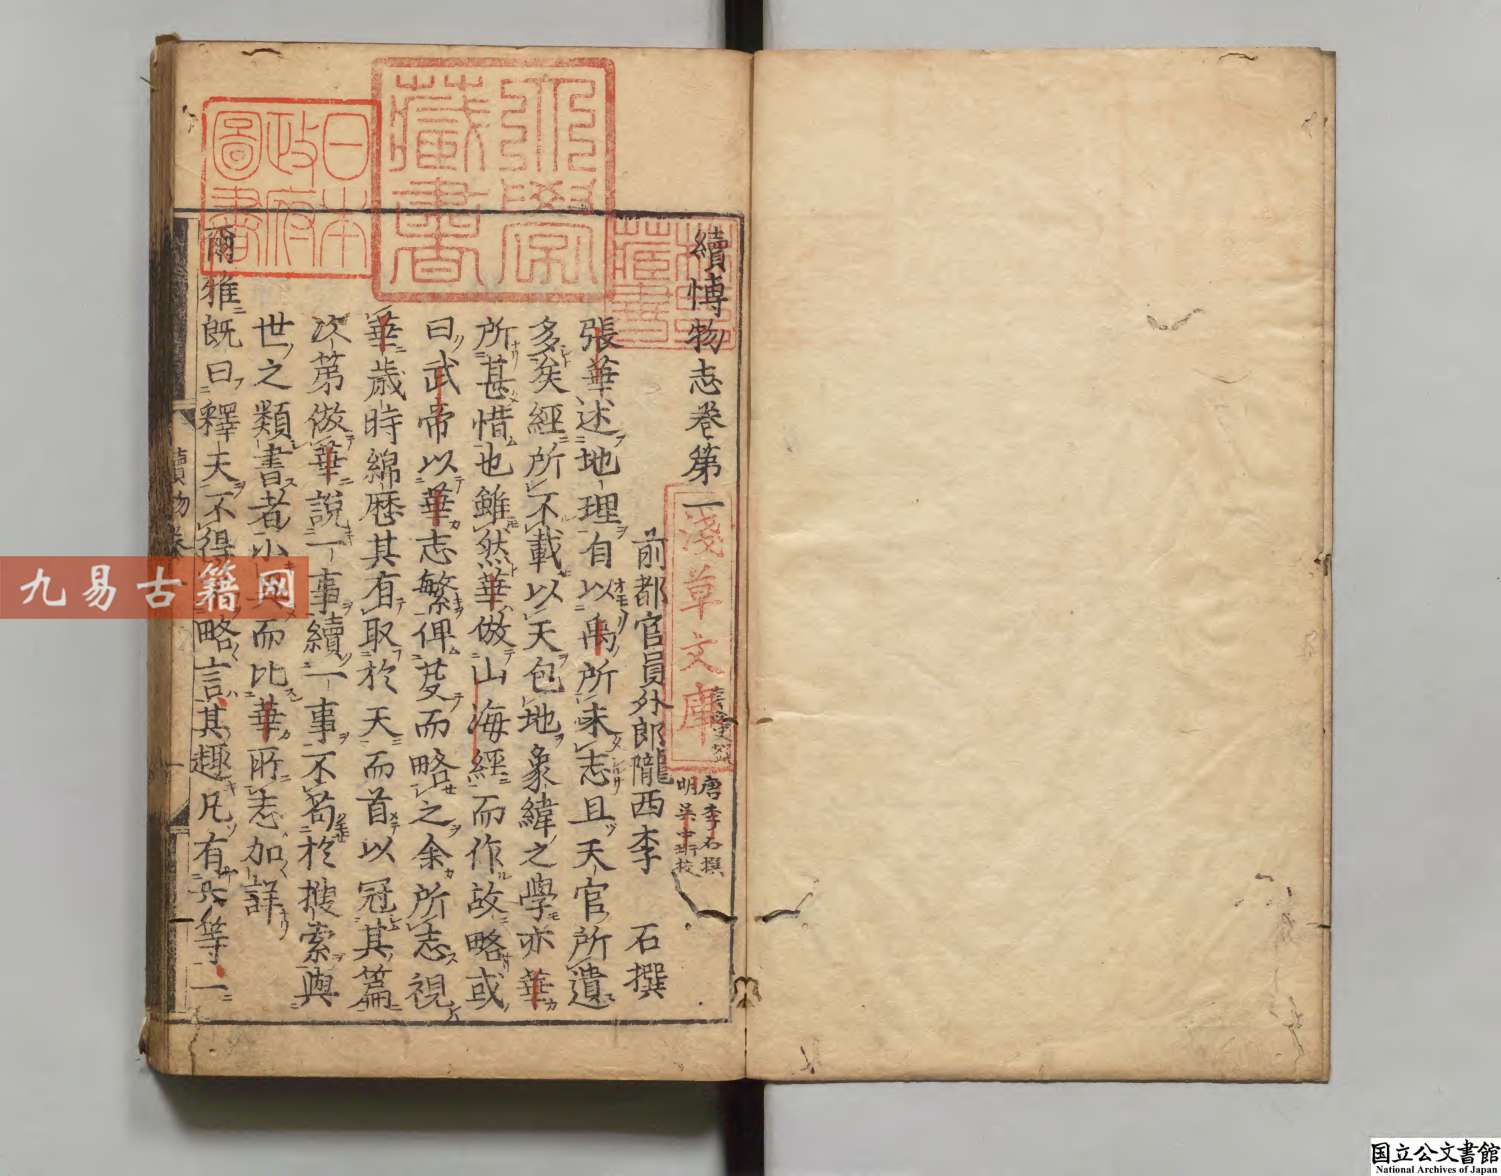 續博物志卷第一
前都官員外郎隴西李 石撰
唐李石撰
明吳中珩校
張華述地理自以禹所未志且天官所遺
多矣經所不載以天包地象緯之學亦華
所甚惜也雖然華倣山海經而作故略或
曰武帝以華志繁俾芟而略之余所志視
華歲時綿歷其有取於天而首以冠其篇
次第倣華說一事續一事不苟於搜索與
世之類書者小異而比華所志加詳
爾雅既曰釋天不得略言其趣凡有六等一
日本政府圖書
昌平藏書
淺草文庫
林氏藏書
九易古籍网
国立公文書館
National Archives of Japan